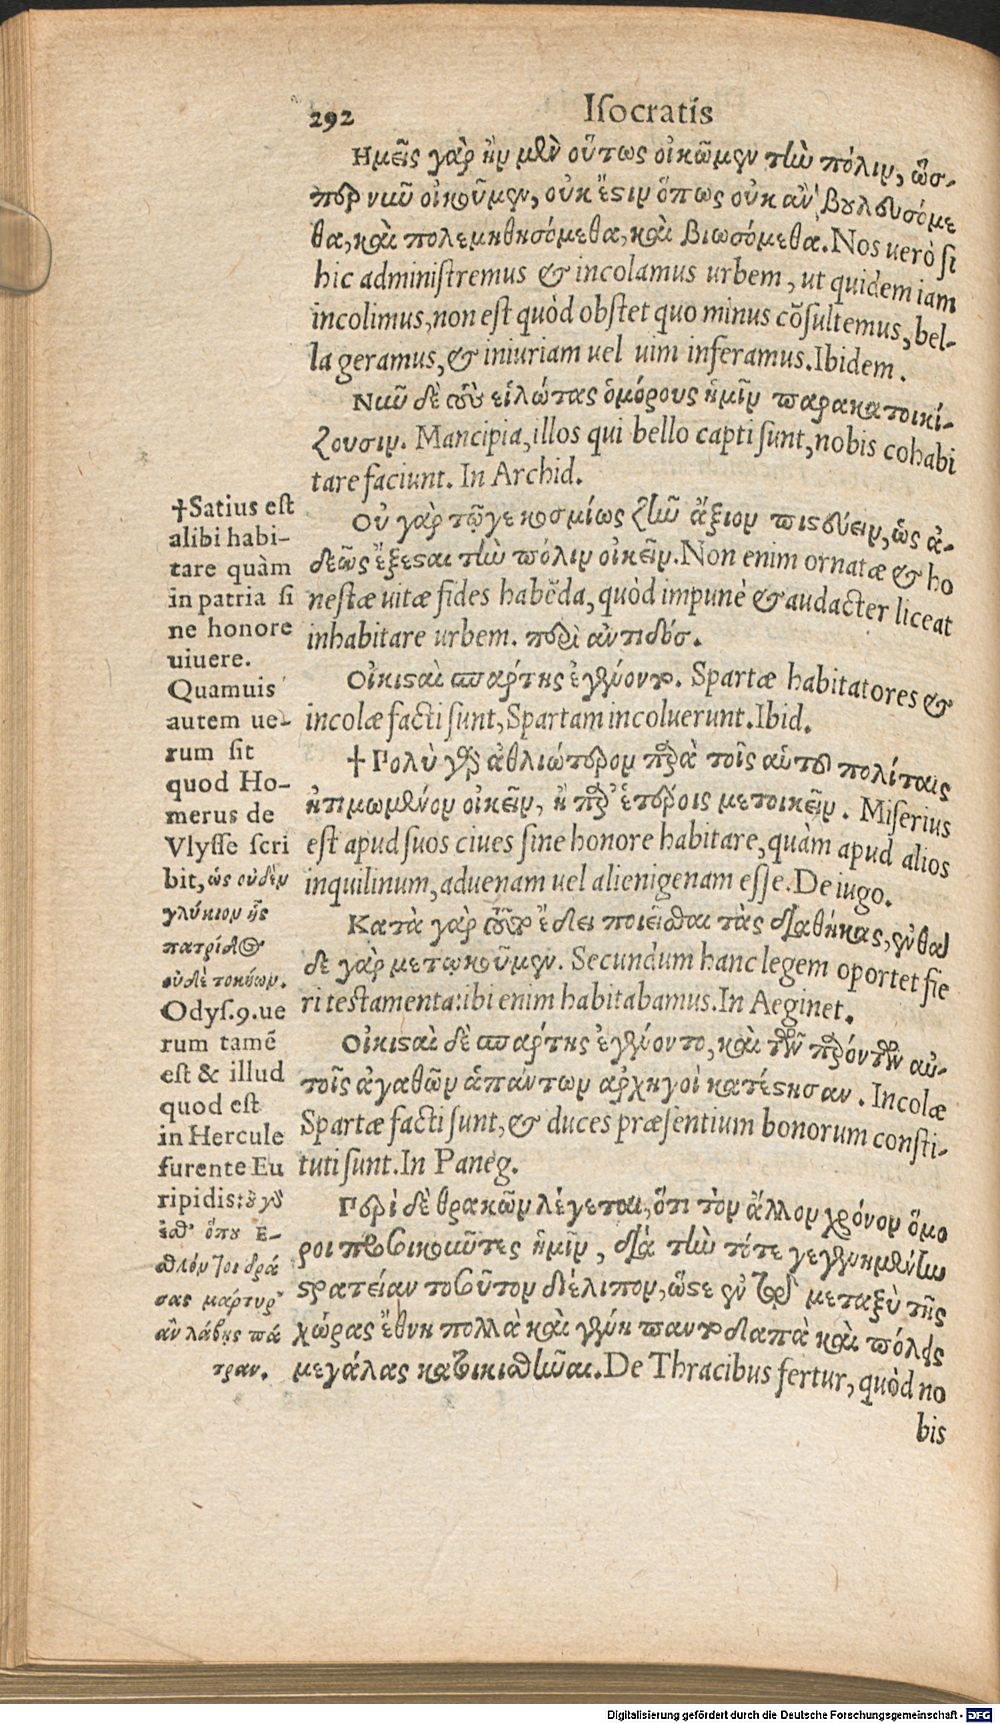 292 Isocratis
Ημεῖς γὰρ ἢν μὲν οὕτως οἰκῶμεν τὴν πόλιν, ὥσ-
περ νῦν οἰκοῦμεν, οὐκ ἔστιν ὅπως οὐκ ἂν βουλευσόμε
θα, καὶ πολεμηθησόμεθα, καὶ βιωσόμεθα. Nos verò si
hic administremus & incolamus urbem, ut quidem iam
incolimus, non est quòd obstet quo minus cõsultemus, bel-
la geramus, & iniuriam uel uim inferamus. Ibidem.
Νῦν δὲ τοὺς εἱλώτας ὁμόρους ἡμῖν παρακατοικί-
ζουσιν. Mancipia, illos qui bello capti sunt, nobis cohabi
tare faciunt. In Archid.
Οὐ γὰρ τῷ γε κοσμίως ζῆν ἄξιον πιστεύειν, ὡς ἀ-
δεῶς ἔξεσται τὴν πόλιν οἰκεῖν. Non enim ornatæ & ho
nestæ uitæ fides habẽda, quòd impunè & audacter liceat
inhabitare urbem. περὶ ἀντιδόσ.
Οἰκισταὶ σπάρτης ἐγένοντο. Spartæ habitatores &
incolæ facti sunt, Spartam incoluerunt. Ibid.
† Πολὺ γὰρ ἀθλιώτερον παρὰ τοῖς αὑτοῦ πολίταις
ἠτιμωμένον οἰκεῖν, ἢ παρ' ἑτέροις μετοικεῖν. Miserius
est apud suos ciues sine honore habitare, quàm apud alios
inquilinum, aduenam uel alienigenam esse. De iugo.
Κατὰ γὰρ τοῦτον ἔδει ποιεῖσθαι τὰς διαθήκας, ἐνθα
δε γὰρ μετῳκοῦμεν. Secundum hanc legem oportet fie
ri testamenta: ibi enim habitabamus. In Aeginet.
Οἰκισταὶ δὲ σπάρτης ἐγένοντο, καὶ τῶν παρόντων αὐ-
τοῖς ἀγαθῶν ἁπάντων ἀρχηγοὶ κατέστησαν. Incolæ
Spartæ facti sunt, & duces præsentium bonorum consti-
tuti sunt. In Paneg.
Περὶ δὲ θρακῶν λέγεται, ὅτι τὸν ἄλλον χρόνον ὅμο
ροι προσοικοῦντες ἡμῖν, διὰ τὴν τότε γεγενημένην
στρατείαν τοσοῦτον διέλιπον, ὥστε ἐν τῷ μεταξὺ τῆς
χώρας ἔθνη πολλὰ καὶ γένη παντοδαπὰ καὶ πόλεις
μεγάλας κατῳκισθῆναι. De Thracibus fertur, quòd no
bis
†Satius est
alibi habi-
tare quàm
in patria si
ne honore
uiuere.
Quamuis
autem ue-
rum sit
quod Ho-
merus de
Vlysse scri
bit, ὡς οὐδὲν
γλύκιον ἧς
πατρίδος
οὐδὲ τοκήων.
Odys. 9. ue
rum tamẽ
est & illud
quod est
in Hercule
furente Eu
ripidis:
ἐσθ' ὅπου ἐ-
σθλόν τι δρά
σας μάρτυρ'
ἂν λάβῃς πά
τραν.
Digitalisierung gefördert durch die Deutsche Forschungsgemeinschaft - DFG